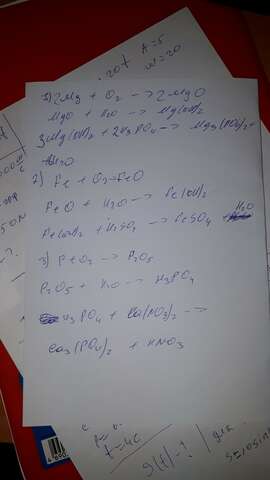 20t A=5
w=20
1) 2Mg + O2 —> 2MgO
MgO + H2O —> Mg(OH)2
3Mg(OH)2 + 2H3PO4 —> Mg3(PO4)2 +
+ H2O
2) Fe + O2 -> FeO
FeO + H2O —> Fe(OH)2
Fe(OH)2 + H2SO4 —> FeSO4 + H2O
3) P + O2 —> P2O5
P2O5 + H2O —> H3PO4
H3PO4 + Ca(NO3)2 —>
Ca3(PO4)2 + HNO3
t=4c
g(t)-?